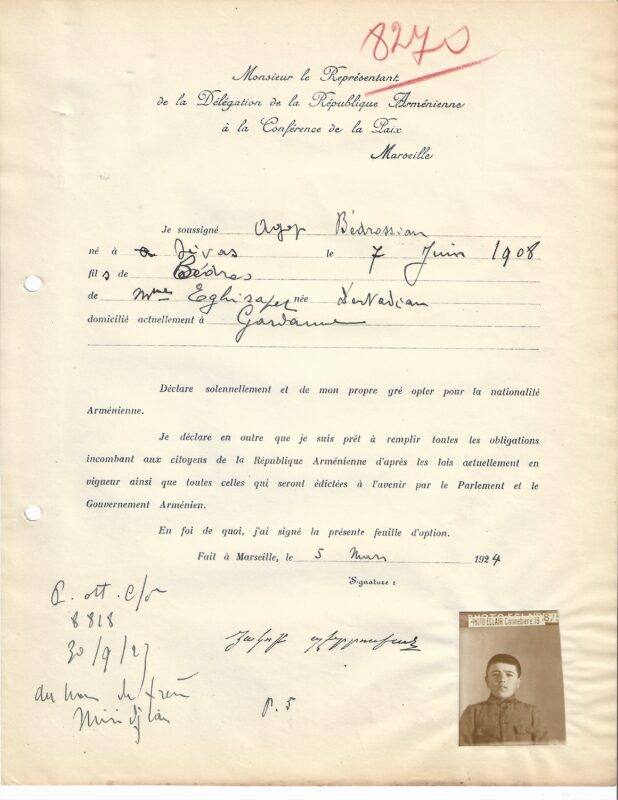 8270
Monsieur le Représentant
de la Délégation de la République Arménienne
à la Conférence de la Paix
Marseille
Je soussigné Agop Bédrossian
né à Sivas le 7 Juin 1908
fils de Bédros
de Mme Eghisapet née
domicilié actuellement à Gardanne
Déclare solennellement et de mon propre gré opter pour la nationalité
Arménienne.
Je déclare en outre que je suis prêt à remplir toutes les obligations
incombant aux citoyens de la République Arménienne d'après les lois actuellement en
vigueur ainsi que toutes celles qui seront édictées à l'avenir par le Parlement et le
Gouvernement Arménien.
En foi de quoi, j'ai signé la présente feuille d'option.
Fait à Marseille, le 5 Mars 1924
Signature :
P. ott. c/or
8818
30/9/27
du nom de
PHOTO-ECLAIR Cannebière 19
P. 5